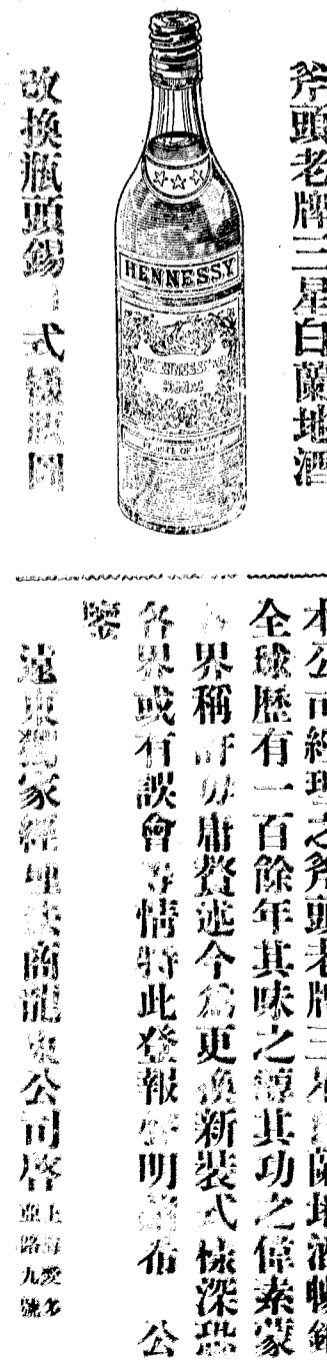 斧頭老牌三星白蘭地酒
HENNESSY
改換瓶頭錫 式樣瓶圖
本公司經理之斧頭老牌三星白蘭地酒暢銷
全球歷有一百餘年其味之醇其功之偉素蒙
各界稱許毋庸贅述今爲更換新裝式樣深恐
各界或有誤會等情特此登報聲明 布 公
鑒
遠東獨家經理法商龍東公司啓
上海愛多
亞路九號